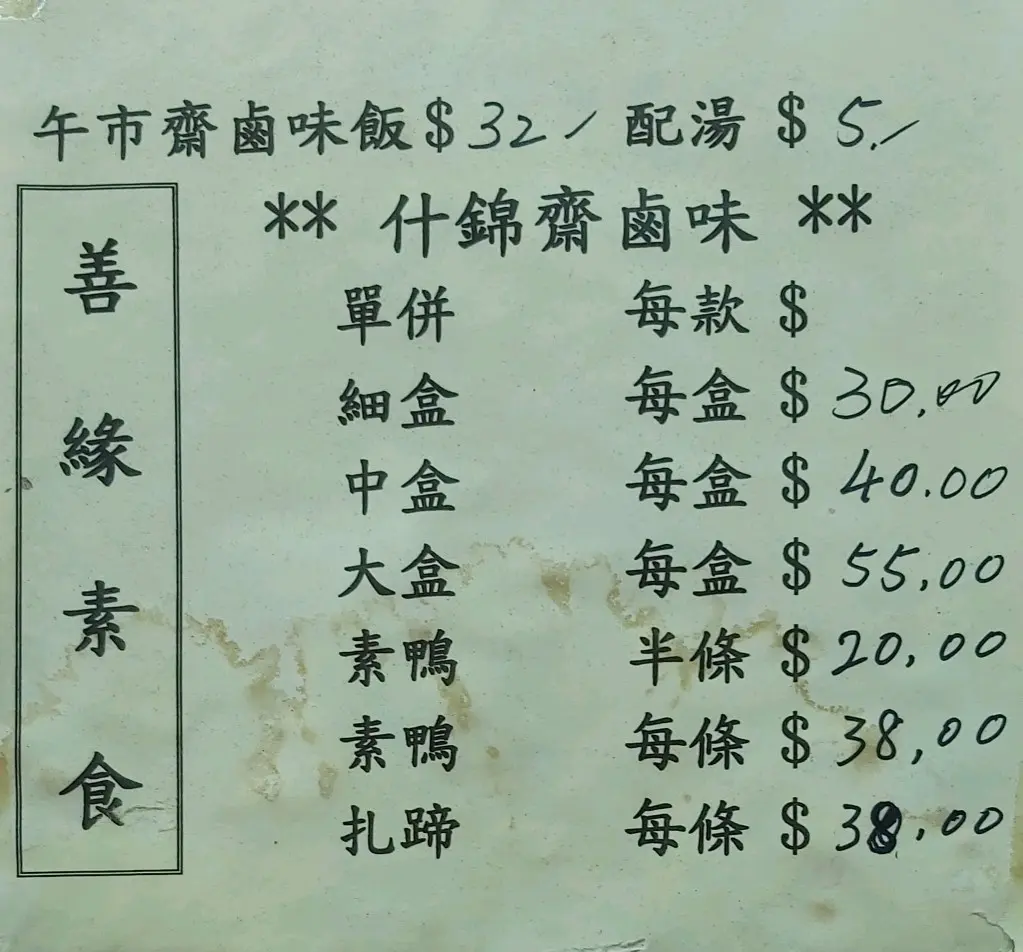 午市齋鹵味飯$32/ 配湯 $5./
善緣素食
** 什錦齋鹵味 **
單併 每款 $
細盒 每盒 $30.00
中盒 每盒 $40.00
大盒 每盒 $55.00
素鴨 半條 $20.00
素鴨 每條 $38.00
扎蹄 每條 $38.00